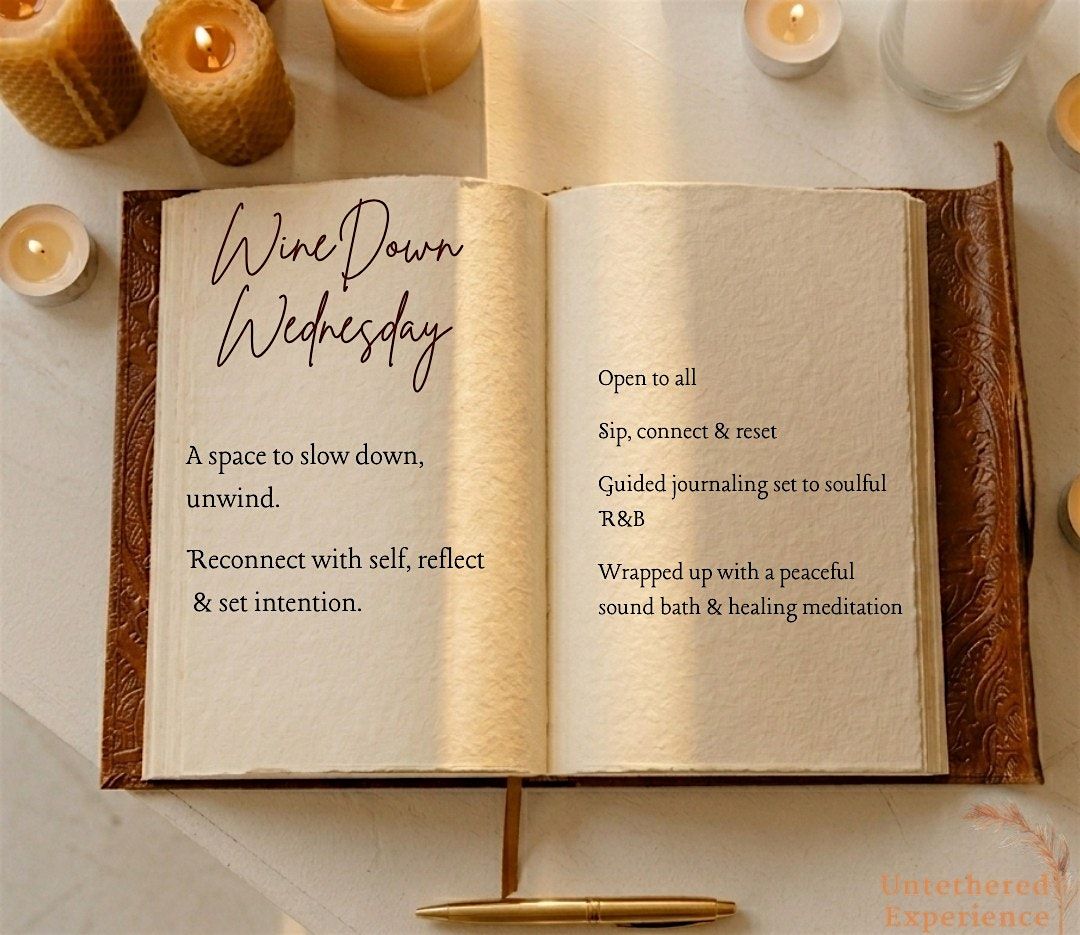 Wine Down
Wednesday
A space to slow down,
unwind.
Reconnect with self, reflect
& set intention.
Open to all
Sip, connect & reset
Guided journaling set to soulful
R&B
Wrapped up with a peaceful
sound bath & healing meditation
Untethered
Experience